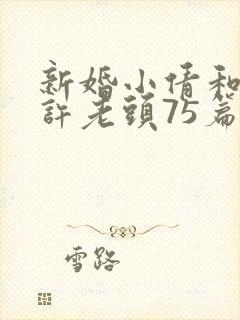 新婚小倩和
許老頭75篇
雪路